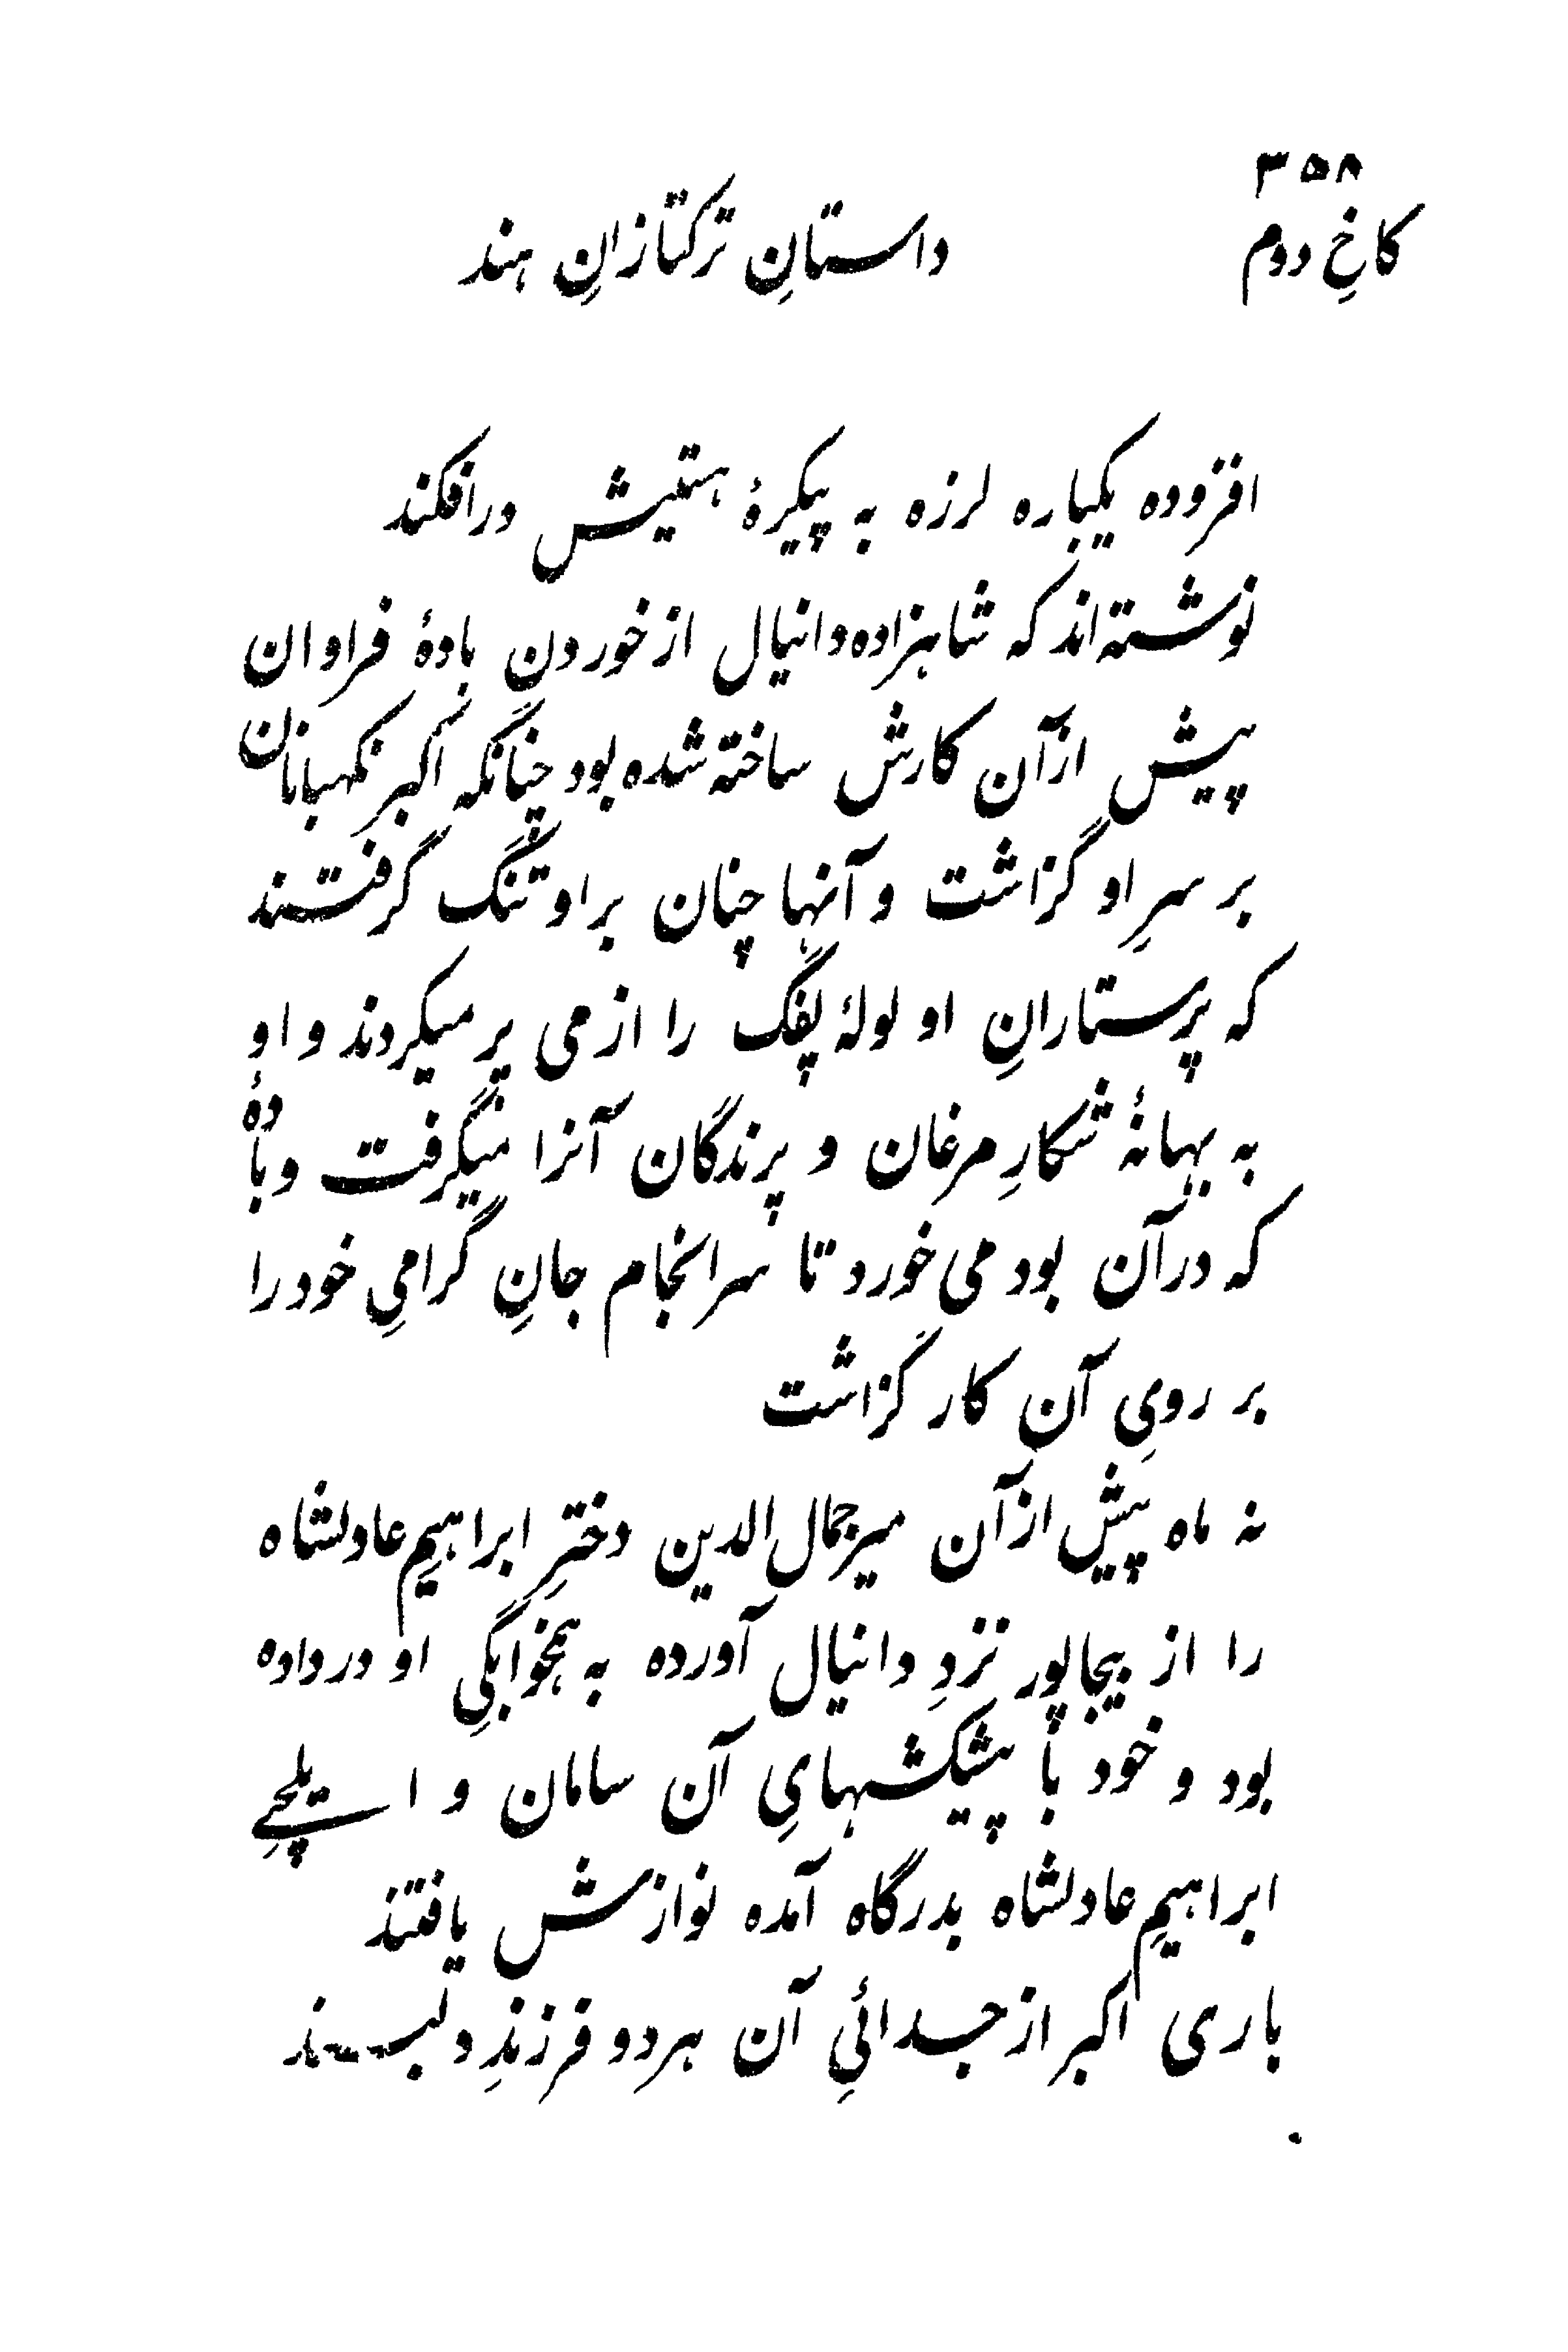 ۳۵۸
کاخِ دوم داستانِ ترکتازانِ هند
افزوده یکباره لرزه به پیکرهٔ هستیش درافکند
نوشته‌اند که شاهزاده دانیال از خوردن بادهٔ فراوان
پیش ازآن کارش ساخته شده بود چنانکه اکبر نگهبانان
بر سرِ او گزاشت و آنها چنان براو تنگ گرفتند
که پرستارانِ او لولهٔ پفک را از می پر میکردند و او
به بهانهٔ شکارِ مرغان و پرندگان آنرا میگرفت و بادهٔ
که درآن بود می خورد تا سرانجام جانِ گرامیِ خود را
بر رویِ آن کار گزاشت
نه ماه پیش ازآن میرجمال الدین دخترِ ابراهیمِ عادلشاه
را از بیجاپور نزدِ دانیال آورده به همخوابگیِ او در داده
بود و خود با پیشکشهایِ آن سامان و ایلچیِ
ابراهیمِ عادلشاه بدرگاه آمده نوازش یافتند
باری اکبر از جدائیِ آن هردو فرزندِ دلبند